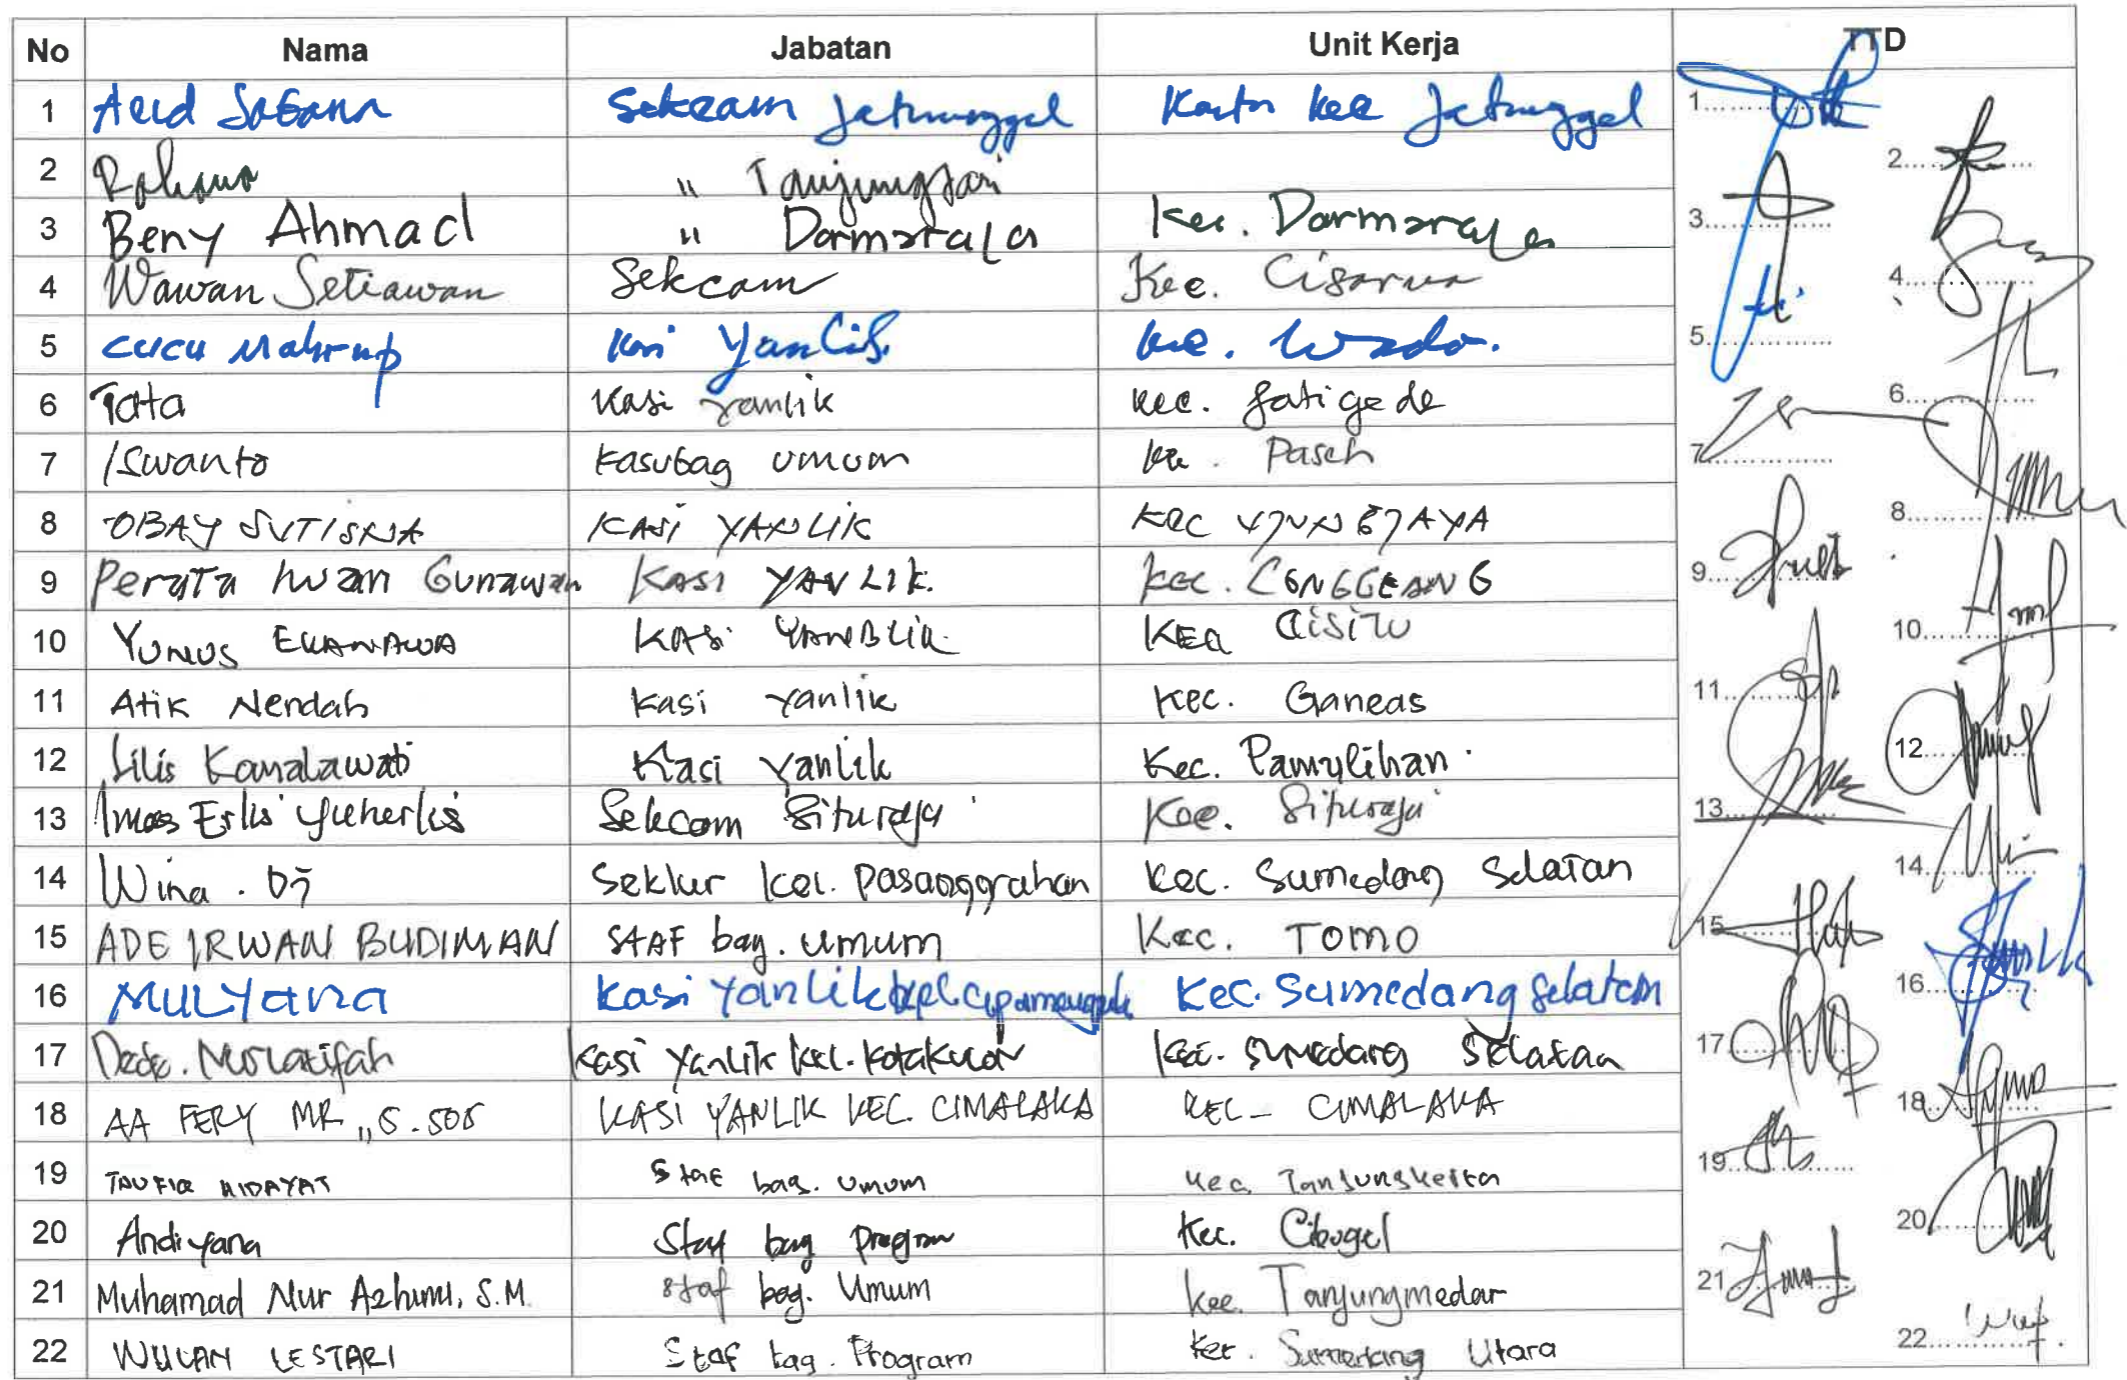 No Nama Jabatan Unit Kerja TTD
1 Sekcam Jatinunggal Kantor Kec Jatinunggal 1
2 Rohana " Tanjungsari 2
3 Beny Ahmad " Darmaraja Kec. Darmaraja 3
4 Wawan Setiawan Sekcam Kec. Cisarua 4
5 Cucu Mahrup Kasi Kec. Wado. 5
6 Tata Kasi Yanlik Kec. Jatigede 6
7 Iswanto Kasubag Umum Kec. Paseh 7
8 OBAY SUTISNA KASI YANLIK KEC 8
9 Perata Iwan Gunawan KASI YANLIK. KEC. CONGGEANG 9
10 YUNUS KASI YANBLIK KEC CISITU 10
11 Atik Nendah Kasi Yanlik Kec. Ganeas 11
12 Lilis Komalawati Kasi Yanlik Kec. Pamulihan. 12
13 Imas Erlis Sekcam Situraja Kec. Situraja 13
14 Wina. Seklur Kel. Pasanggrahan Kec. Sumedang Selatan 14
15 ADE IRWAN BUDIMAN STAF bag. Umum Kec. TOMO 15
16 MULYANA Kasi Yanlik Kel. Cipameungpeuk Kec. Sumedang Selatan 16
17 Dede. Nurlatifah Kasi Yanlik Kel. Kotakulon Kec. Sumedang Selatan 17
18 AA FERY MR KASI YANLIK KEC. CIMALAKA KEC - CIMALAKA 18
19 TAUFIQ HIDAYAT Staf bag. Umum Kec. Tanjungkerta 19
20 Andiyana Staf bag Program Kec. Cibugel 20
21 Muhamad Nur Azhimi, S.M. Staf bag. Umum Kec. Tanjungmedar 21
22 WULAN LESTARI Staf bag. Program Kec. Sumedang Utara 22